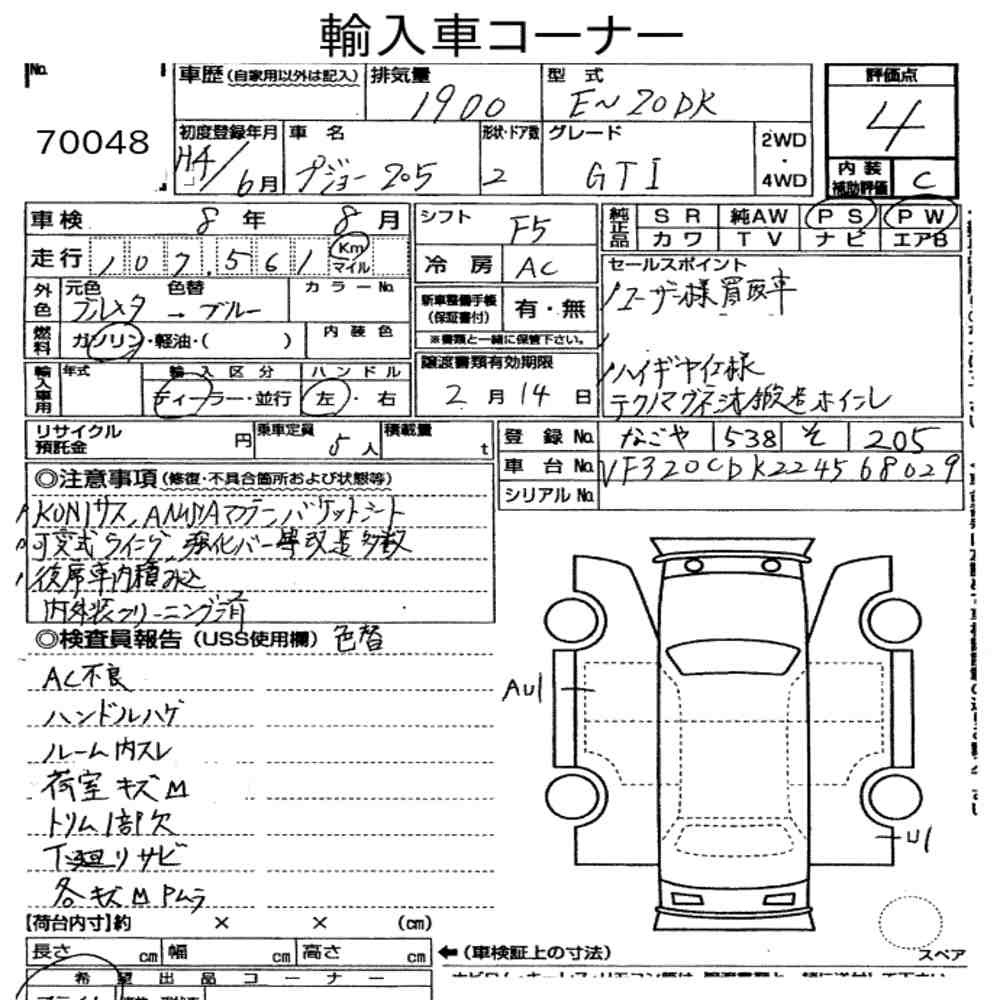 輸入車コーナー
No. 70048
車歴(自家用以外は記入) 排気量 1900 型式 E〜20DK 評価点 4
初度登録年月 H4/6月 車名 プジョー205 形状・ドア数 2 グレード GTI 2WD・4WD 内装補助評価 C
車検 8年 8月 シフト F5 純正品 SR 純AW PS PW
カワ TV ナビ エアB
走行 107,561 Km マイル 冷房 AC セールスポイント
外色 元色 ブルメタ → 色替 ブルー カラーNo. 新車整備手帳(保証書付) 有・無 ユーザー様買取車
※書類と一緒に保管下さい。
燃料 ガソリン・軽油・( ) 内装色
輸入車用 年式 輸入区分 ディーラー・並行 ハンドル 左・右 譲渡書類有効期限 2月14日 ハイギヤ仕様
テクノマグネシオ鍛造ホイール
リサイクル預託金 円 乗車定員 5人 積載量 t 登録No. なごや 538 そ 205
車台No. VF320CDK224568029
シリアルNo.
◎注意事項(修復・不具合箇所および状態等)
KONIサス、バケットシート
可変式 強化バー等改造多数
後席車内積み込
内外装クリーニング済
◎検査員報告(USS使用欄) 色替
AC不良
ハンドルハゲ
ルーム内スレ
荷室キズM
トリム1部欠
下廻りサビ
各キズM Pムラ
AU1
U1
スペア
【荷台内寸】約 × × (cm)
長さ cm 幅 cm 高さ cm ←(車検証上の寸法)
希望出品コーナー